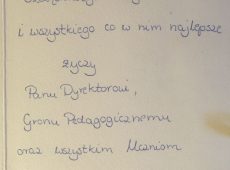 i wszystkiego co w nim najlepsze
życzy
Panu Dyrektorowi,
Gronu Pedagogicznemu
oraz wszystkim Uczniom